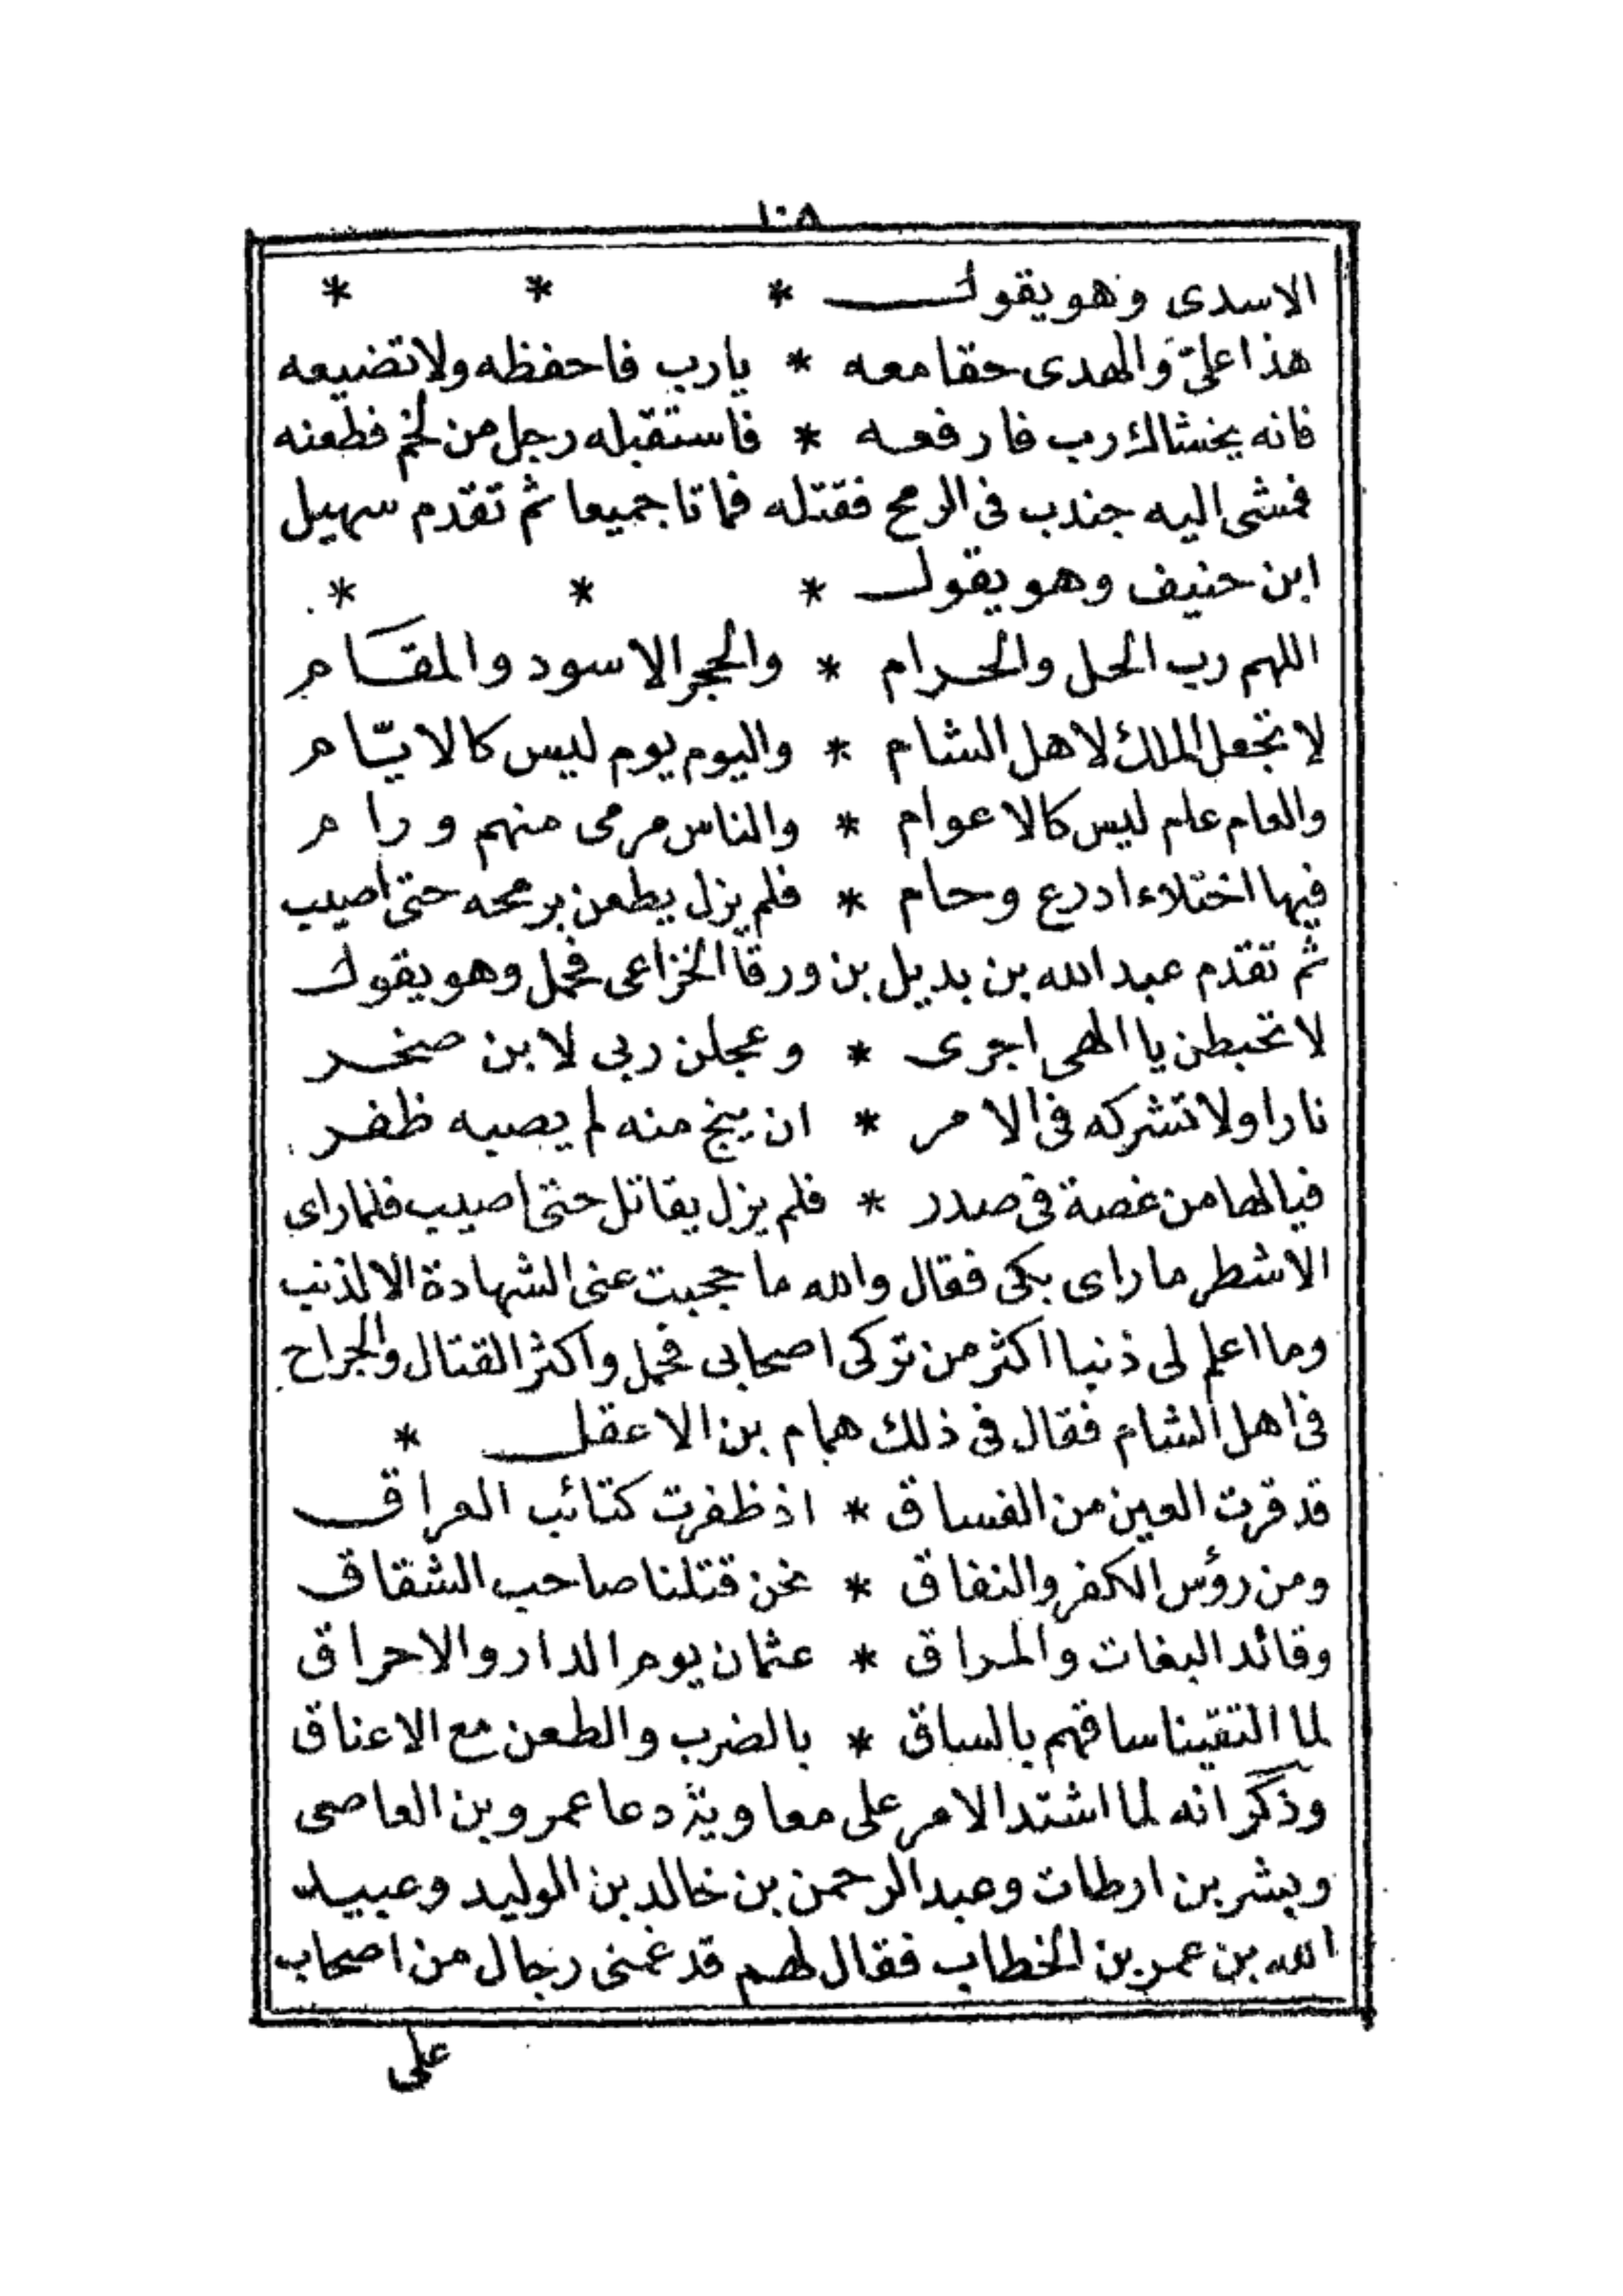 ١٠٥
الاسدى وهو يقول * * *
هذا علىّ والهدى حقا معه * يارب فاحفظه ولا تضيعه
فانه يخشاك رب فارفعه * فاستقبله رجل من لخم فطعنه
فمشى اليه جندب فى الرمح فقتله فماتا جميعا ثم تقدم سهيل
ابن حنيف وهو يقول * * *
اللهم رب الحل والحرام * والحجر الاسود والمقام
لا تجعل الملك لاهل الشام * واليوم يوم ليس كالايّام
والعام عام ليس كالاعوام * والناس مرمى منهم ورام
فيها اختلاء ادرع وحام * فلم يزل يطعن برمحه حتى اصيب
ثم تقدم عبد الله بن بديل بن ورقا الخزاعى فحمل وهو يقول
لا تحبطن يا الهى اجرى * وعجلن ربى لابن صخر
نارا ولا تشركه فى الامر * ان ينج منه لم يصبه ظفر
فيالها من غصة فى صدر * فلم يزل يقاتل حتى اصيب فلما راى
الاشطر ما راى بكى فقال والله ما حجبت عنى الشهادة الا لذنب
وما اعلم لى ذنبا اكثر من تركى اصحابى فحمل واكثر القتال والجراح
فى اهل الشام فقال فى ذلك همام بن الاعقل *
قد قرت العين من الفساق * اذ ظفرت كتائب العراق
ومن رؤس الكفر والنفاق * نحن قتلنا صاحب الشقاق
وقائد البغات والمراق * عثمان يوم الدار والاحراق
لما التقينا ساقهم بالساق * بالضرب والطعن مع الاعناق
وذكر انه لما اشتد الامر على معاوية دعا عمرو بن العاصى
وبشر بن ارطات وعبد الرحمن بن خالد بن الوليد وعبيد
الله بن عمر بن الخطاب فقال لهم قد غمنى رجال من اصحاب
على